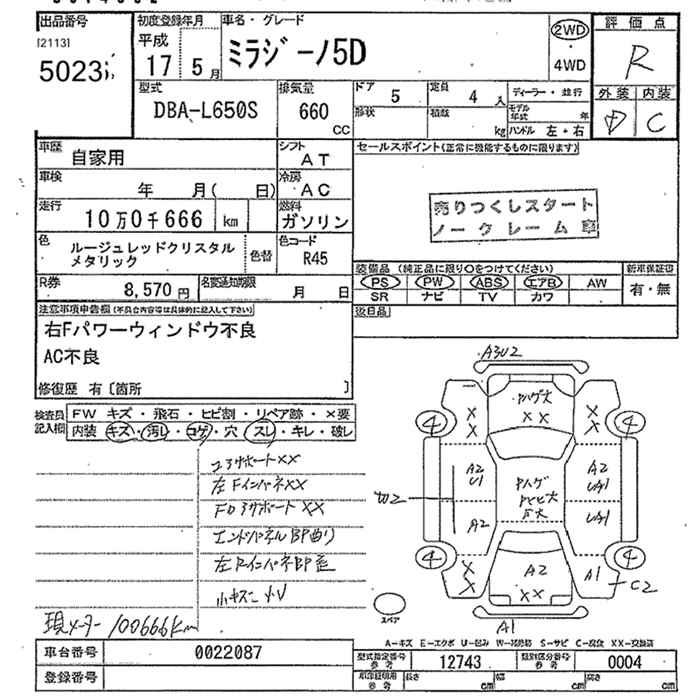 出品番号
[2113]
初度登録年月
平成
17 5月
車名・グレード
ミラジーノ5D
2WD
・
4WD
評価点
R
外装 内装
D C
型式
DBA-L650S
排気量
660
CC
ドア
5
定員
4 人
形状
積載
kg
ディーラー・並行
モデル年式 年
ハンドル 左・右
車歴
自家用
シフト
AT
車検
年 月( 日)
冷房
AC
走行
10万0千666 km
燃料
ガソリン
色
ルージュレッドクリスタル
メタリック
色替
色コード
R45
R券
8,570円
名変通知期限
月 日
セールスポイント(正常に機能するものに限ります)
売りつくしスタート
ノークレーム車
装備品 (純正品に限り○をつけてください)
PS PW ABS エアB AW
SR ナビ TV カワ
新車保証書
有・無
後日品
注意事項申告欄(不具合内容等は具体的に記入して下さい)
右Fパワーウィンドウ不良
AC不良
修復歴 有〔箇所 〕
検査員
記入欄
FW キズ・飛石・ヒビ割・リペア跡・×要
内装 キズ・汚レ・コゲ・穴・スレ・キレ・破レ
コアサポートXX
左FインパネXX
エンドパネルBP曲り
現メーター 100666Km
A3U2
XX
A2
U1
A2
A2
UA1
UA1
A2
XX
A1
C2
A1
4
4
4
4
スペア
A-キズ E-エクボ U-凹み W-補修跡 S-サビ C-腐食 XX-交換済
車台番号 0022087
登録番号
型式指定番号
参考
12743
類別区分番号
参考
0004
長さ cm
幅 cm
高さ cm